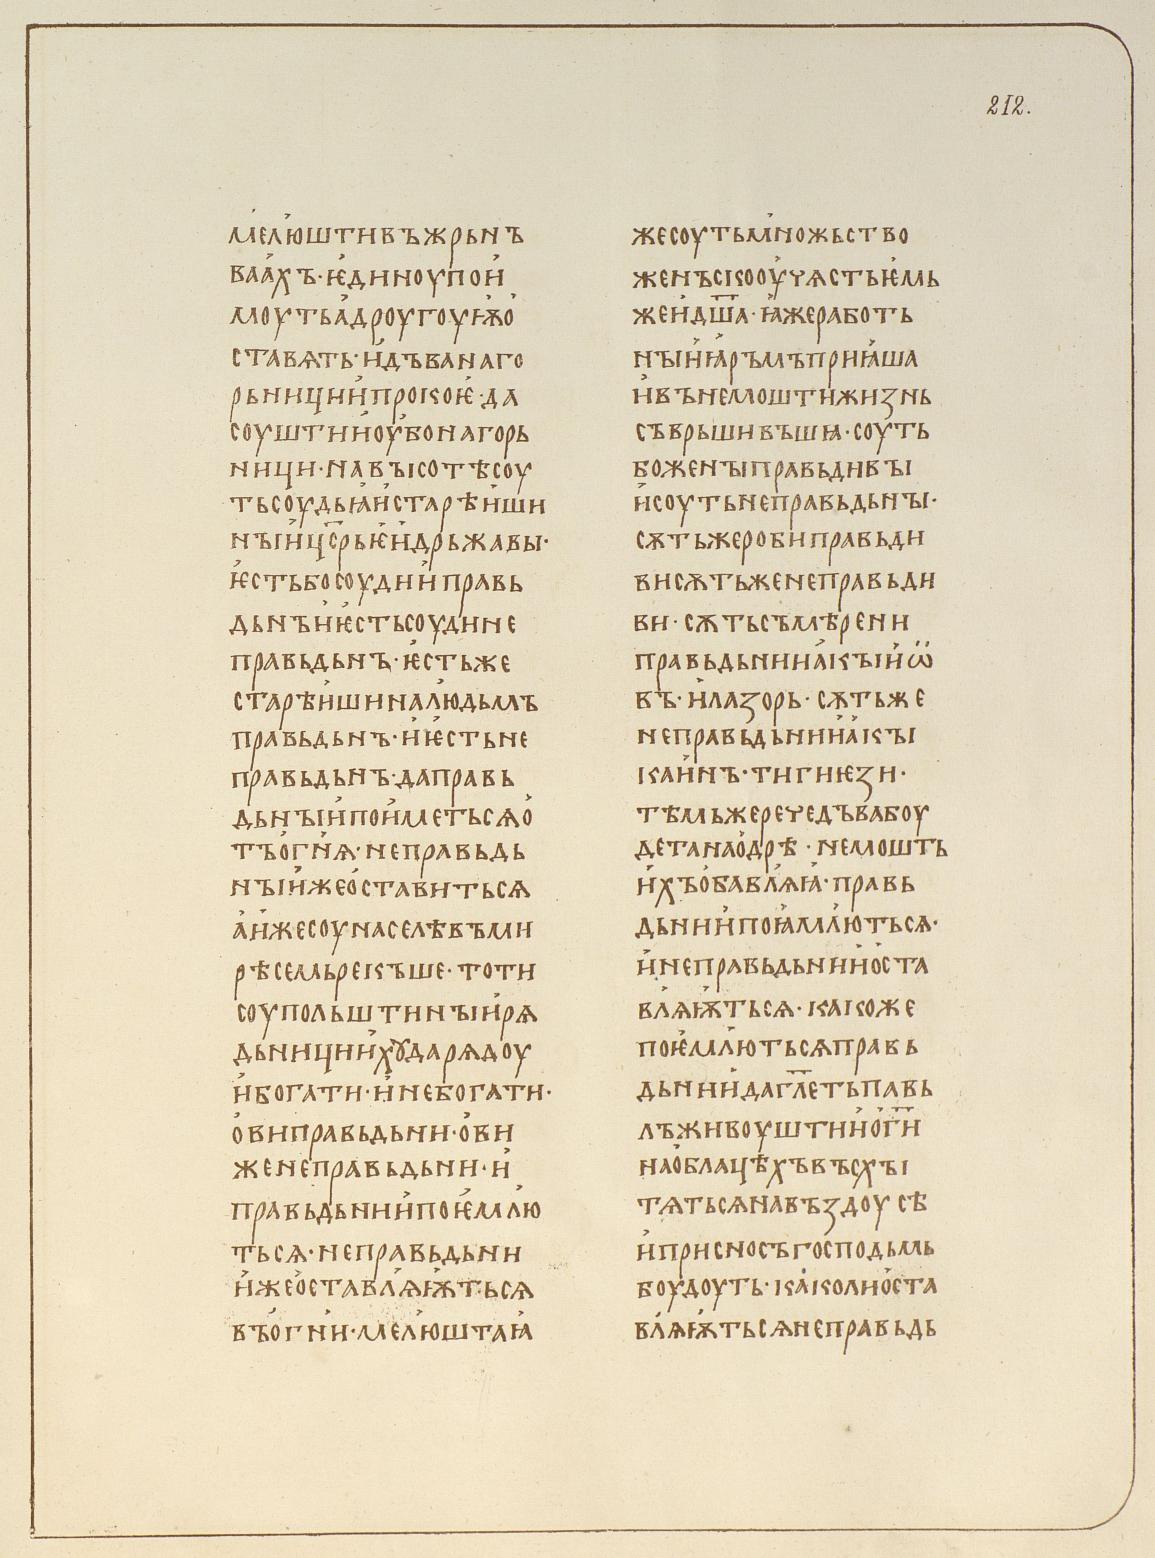 212.
мелюштивъжрьнъ
ваахъ·ѥдиноупои
моутьадроугоуѭо
ставѧть·идъванаго
рьницииипрокоѥ·да
соуштииоубонагорь
ници·нависотѣсоу
тьсоудьꙗистарѣиши
нꙑицс҃рьѥидрьжавы·
ѥстьбосоудиіиправь
дьнъиѥстьсоудине
правьдьнъ·ѥстьже
старѣишиналюдьмъ
правьдьнъ·иѥстьне
правьдьнъ·даправь
дьнꙑипоиметьсѧо
тъогнꙗ·неправьдь
нꙑижеоставитьсѧ
аижесоунаселѣвъми
рѣсемьрекъше·тоти
соупольштинꙑирѧ
дьницииихꙋдарѧдоу
ибогати·инебогати·
овиправьдьни·ови
женеправьдьни·и
правьдьнииипоѥмлю
тьсѧ·неправьдьни
ижеоставлѧѭтьсѧ
въогни·мелюштаꙗ
жесоутьмножьство
женъскооучѧстьѥмь
жеидш҃а·ꙗжеработь
нꙑиꙗръмъприꙗша
ивънемоштижизнь
съврьшивъшѩ·соуть
боженꙑправьдивꙑ
исоутьнеправьдьнꙑ·
сѫтьжеробиправьди
висѫтьженеправьди
ви·сѫтьсъмѣрени
правьдьнииакꙑиѡ
въ·илазорь·сѫтьже
неправьдьнииакꙑ
каинъ·тигиѥзи·
тѣмьжеречедъвабоу
детанаодрѣ·немошть
ихъобавлѧꙗ·правь
дьнииипоꙗмлютьсѧ·
инеправьдьнииоста
влѧѭтьсѧ·какоже
поѥмлютьсѧправь
дьнииидагл҃етьпавь
лъживоуштииог҃и
наоблацѣхъвъсхꙑ
тѧтьсѧнавъздоусѣ
иприсносъгосподьмь
боудоуть·каколиоста
влѧѭтьсѧнеправьдь